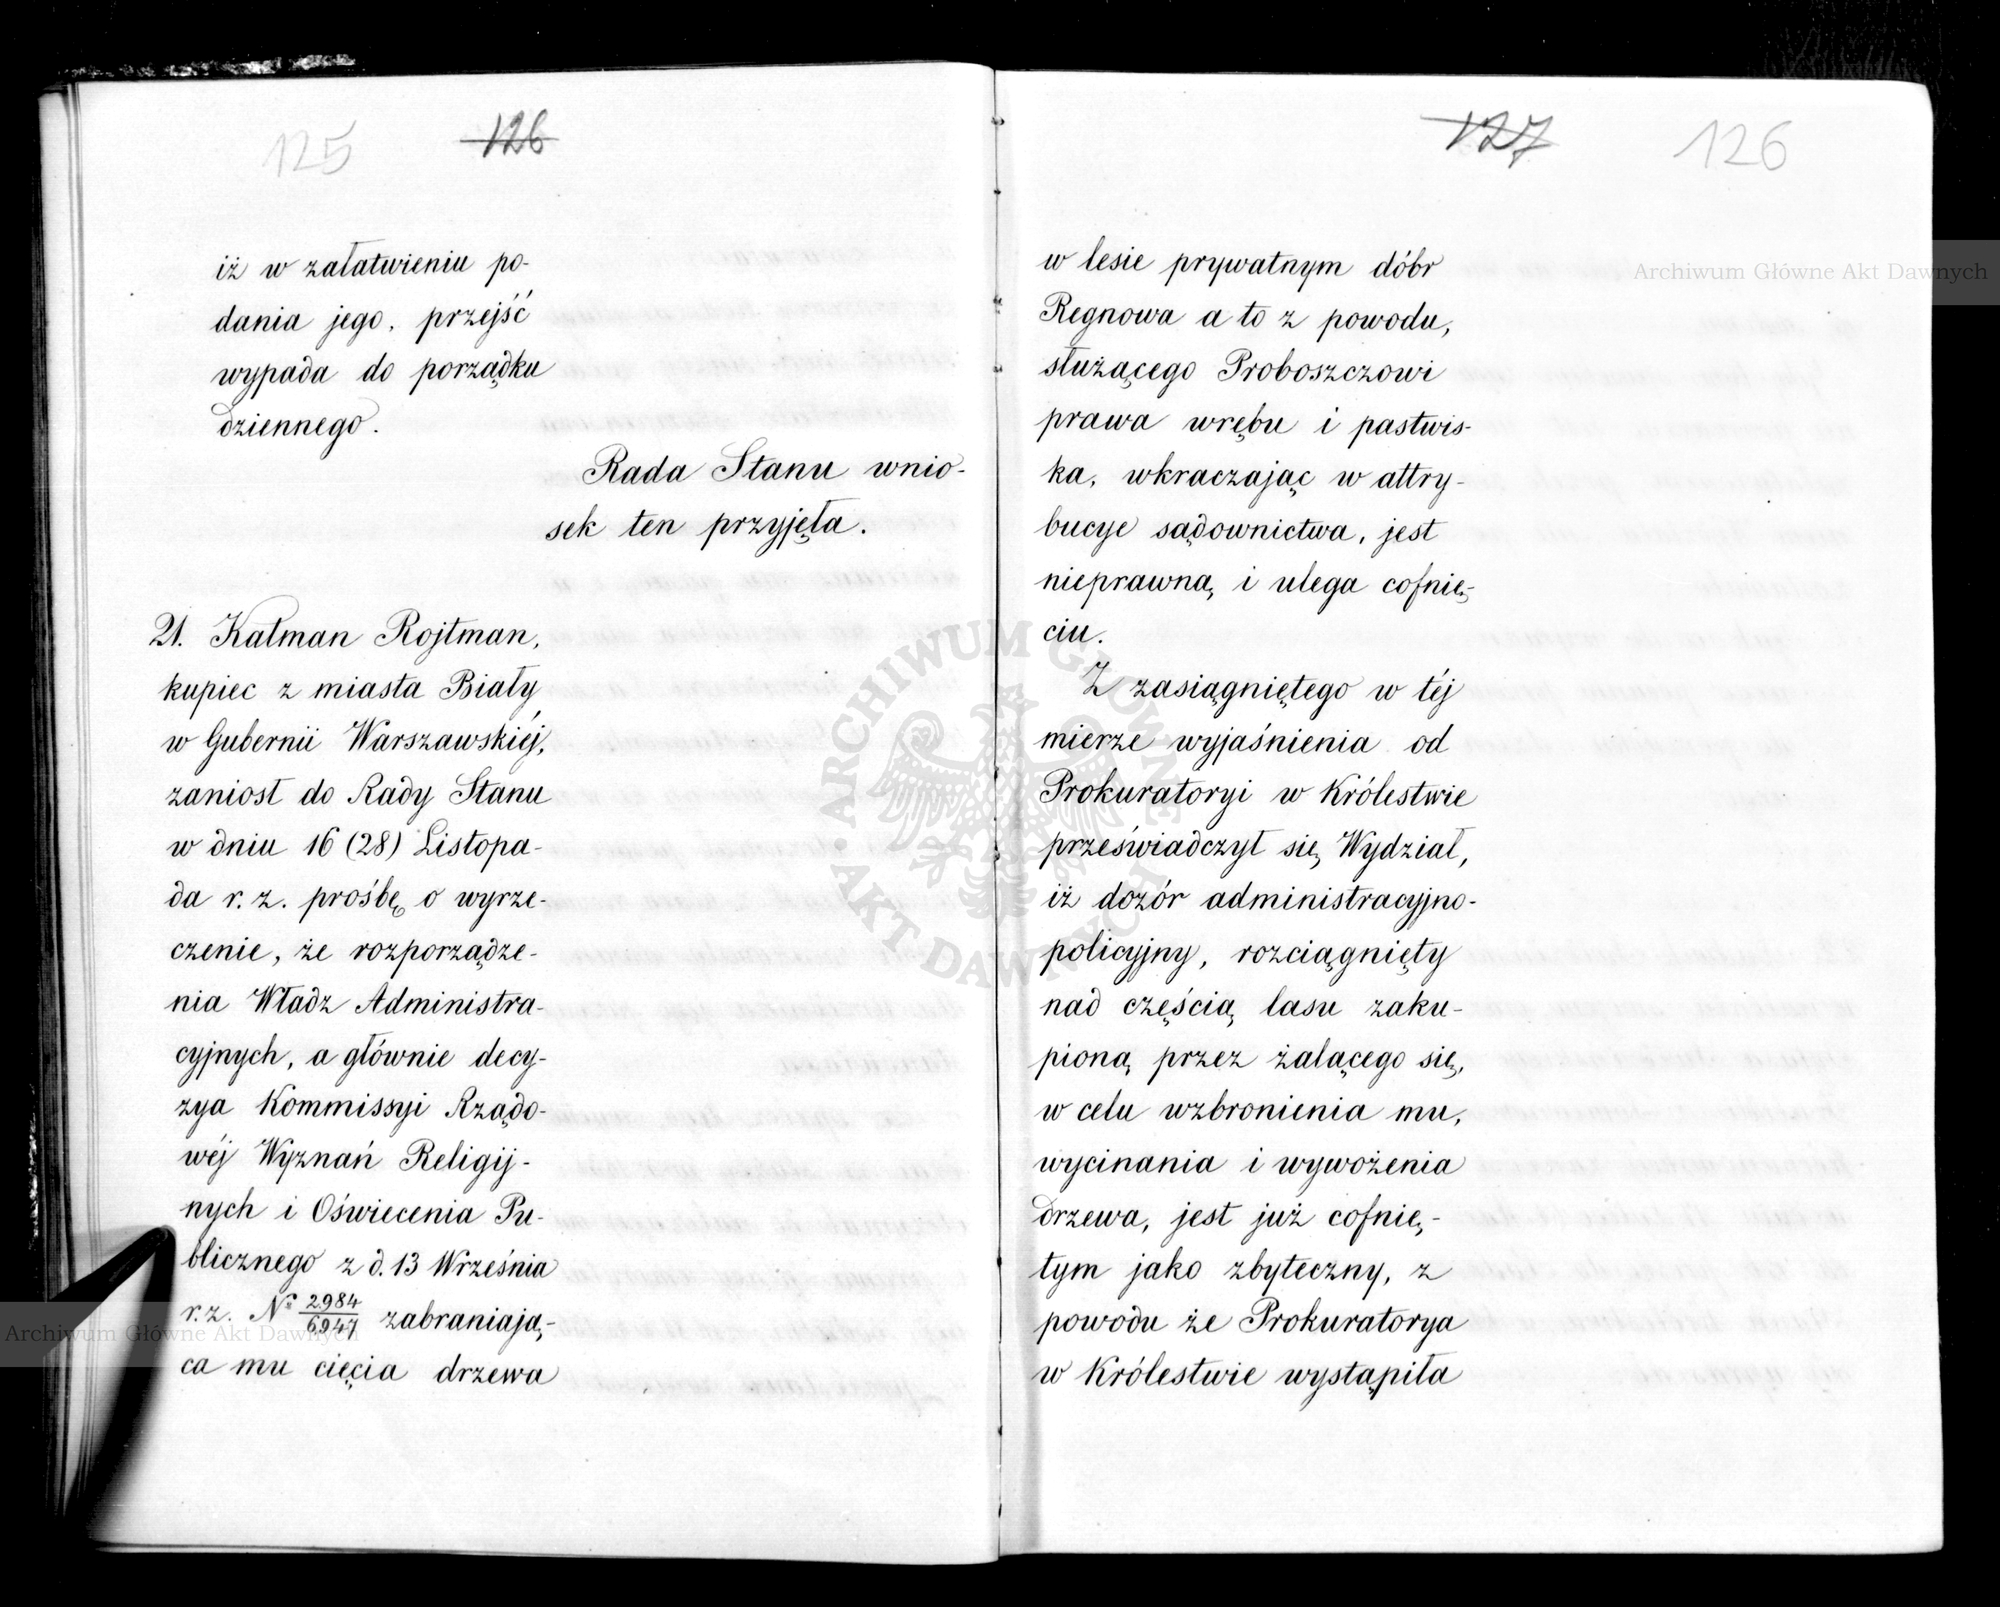 125 126
iż w załatwieniu po-
dania jego, przejść
wypada do porządku
dziennego.
Rada Stanu wnio-
sek ten przyjęła.
21. Kałman Rojtman,
kupiec z miasta Biały
w Gubernii Warszawskiéj,
zaniosł do Rady Stanu
w dniu 16 (28) Listopa-
da r. z. prośbę o wyrze-
czenie, że rozporządze-
nia Władz Administra-
cyjnych, a głównie decy-
zya Kommissyi Rządo-
wéj Wyznań Religij-
nych i Oświecenia Pu-
blicznego z d. 13 Września
r. z. Nr 2984/6947 zabraniają-
ca mu cięcia drzewa
127 126
w lesie prywatnym dóbr
Regnowa a to z powodu,
służącego Proboszczowi
prawa wrębu i pastwis-
ka, wkraczając w attry-
bucye sądownictwa, jest
nieprawną i ulega cofnię-
ciu.
Z zasiągniętego w téj
mierze wyjaśnienia od
Prokuratoryi w Królestwie
przeświadczył się Wydział,
iż dozór administracyjno-
policyjny, rozciągnięty
nad częścią lasu zaku-
pioną przez żalącego się,
w celu wzbronienia mu,
wycinania i wywożenia
drzewa, jest już cofnię-
tym jako zbyteczny, z
powodu że Prokuratorya
w Królestwie wystąpiła
Archiwum Główne Akt Dawnych
ARCHIWUM GŁÓWNE AKT DAWNYCH
Archiwum Główne Akt Dawnych